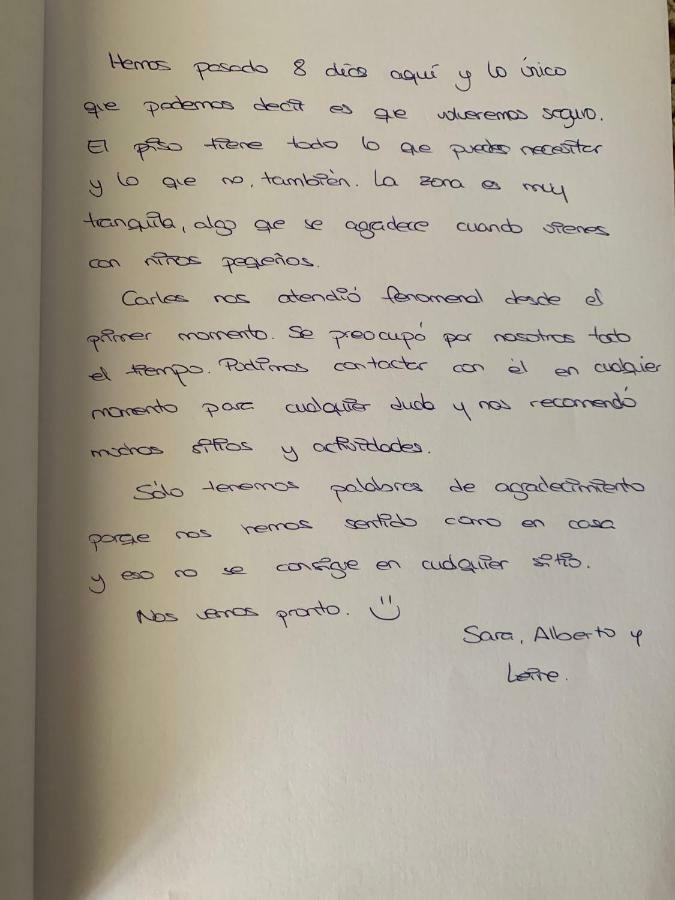 Hemos pasado 8 días aquí y lo único
que podemos decir es que volveremos seguro.
El piso tiene todo lo que puedes necesitar
y lo que no, también. La zona es muy
tranquila, algo que se agradece cuando vienes
con niños pequeños.
Carles nos atendió fenomenal desde el
primer momento. Se preocupó por nosotros todo
el tiempo. Pudimos contactar con él en cualquier
momento para cualquier duda y nos recomendó
muchos sitios y actividades.
Sólo tenemos palabras de agradecimiento
porque nos hemos sentido como en casa
y eso no se consigue en cualquier sitio.
Nos vemos pronto. :)
Sara, Alberto y
Leire.